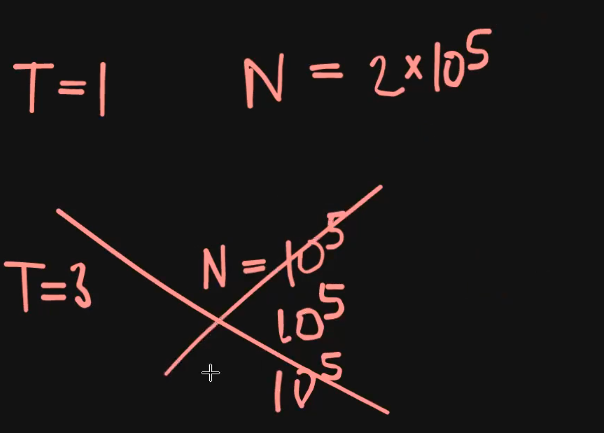 T=1 N = 2×10⁵
T=3 N = 10⁵
10⁵
10⁵